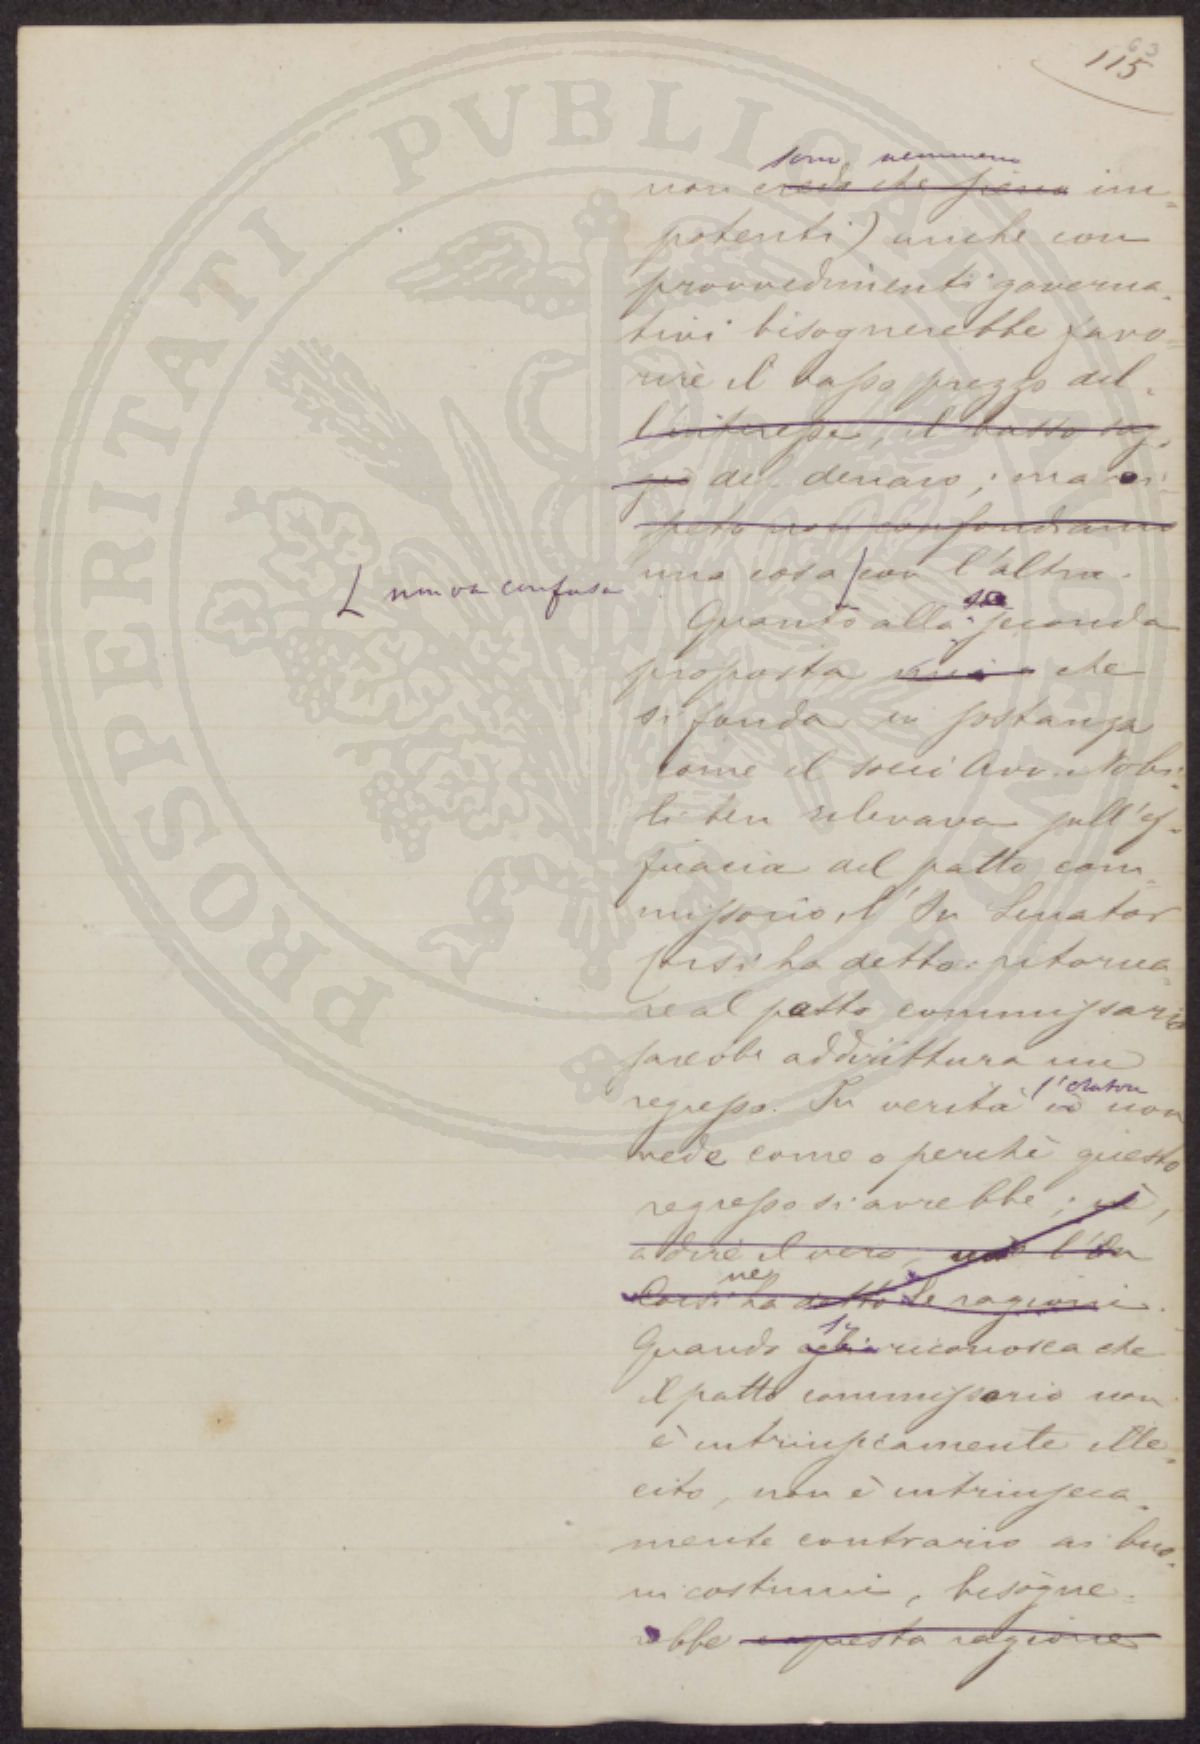 63
115
sono nemmeno
non credo che sieno im-
potenti) anche con
provvedimenti governa-
tivi bisognerebbe favo-
rire il basso prezzo del-
l'interesse, il basso sag-
gio del denaro; ma ri-
peto non confondiamo
una cosa con l'altra.
non va confusa
Quanto alla seconda
proposta mia che
si fonda in sostanza
come il socio Avv. Nobi-
li ben rilevava sull'ef-
ficacia del patto com-
missorio, l'On Senator
Corsi ha detto: ritorna-
re al patto commissorio
sarebbe addirittura un
l'oratore
regresso. In verità io non
vede come o perchè questo
regresso si avrebbe; nè,
a dire il vero, l'On
ne
Corsi ha detto le ragioni.
si
Quando egli riconosca che
il patto commissorio non
è intrinsicamente ille-
cito, non è intrinseca-
mente contrario ai buo-
ni costumi, bisogne-
rebbe questa ragione
PROSPERITATI PVBLICAE